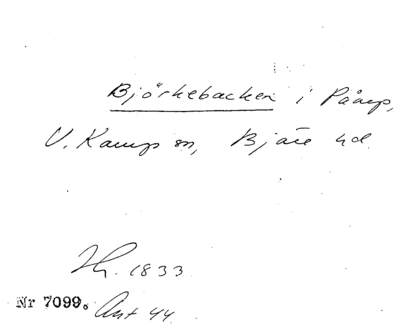 Björkebacken i Påarp,
V. Karup sn, Bjäre hd.
Hr. 1833
Nr 7099. Ant 44